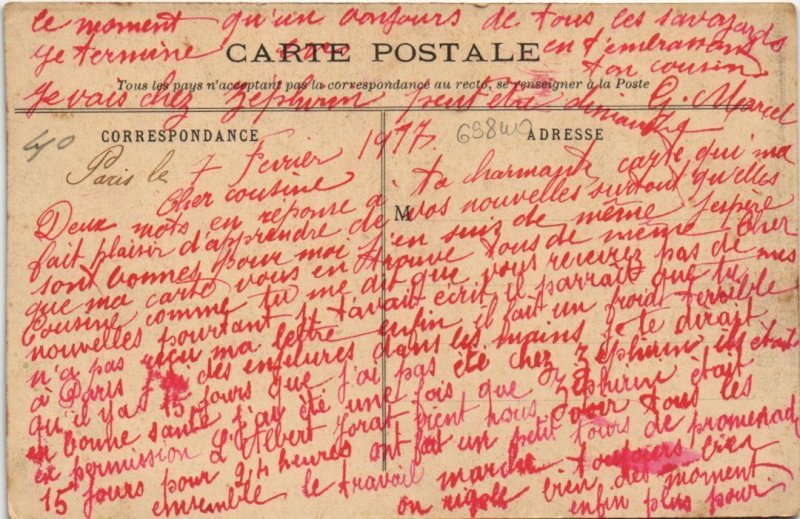 le moment qu'un bonjours de tous les savoyards
Je termine en t'embrassant
CARTE POSTALE
ton cousin
Tous les pays n'acceptant pas la correspondance au recto, se renseigner à la Poste
Je vais chez Zéphirin peut être dimanche G. Marcel
CORRESPONDANCE
ADRESSE
40
698
Paris le 7 février 1917.
Cher cousine
M
Deux mots en réponse a ta charmante carte qui ma
fait plaisir d'apprendre de vos nouvelles surtout qu'elles
sont bonnes pour moi j'en suiz de même j'espère
que ma carte vous en trouve tous de même Cher
Cousine comme tu me dit que vous recevez pas de mes
nouvelles pourtant je t'avait écrit il parrait que tu
n'a pas reçu ma lettre enfin il fait un froid terrible
a Paris j'ai des enfelures dans les mains je te dirait
qu'il y as 15 jours que j'ai pas été chez Zéphirin ils était
en bonne santé j'ai été une fois que Zéphirin était
en permission L'Albert Jorat vient nous voir tous les
15 jours pour 24 heures ont fait un petit tours de promenad
ensemble le travail marche toujours bien
on rigole bien des moment
enfin plus pour